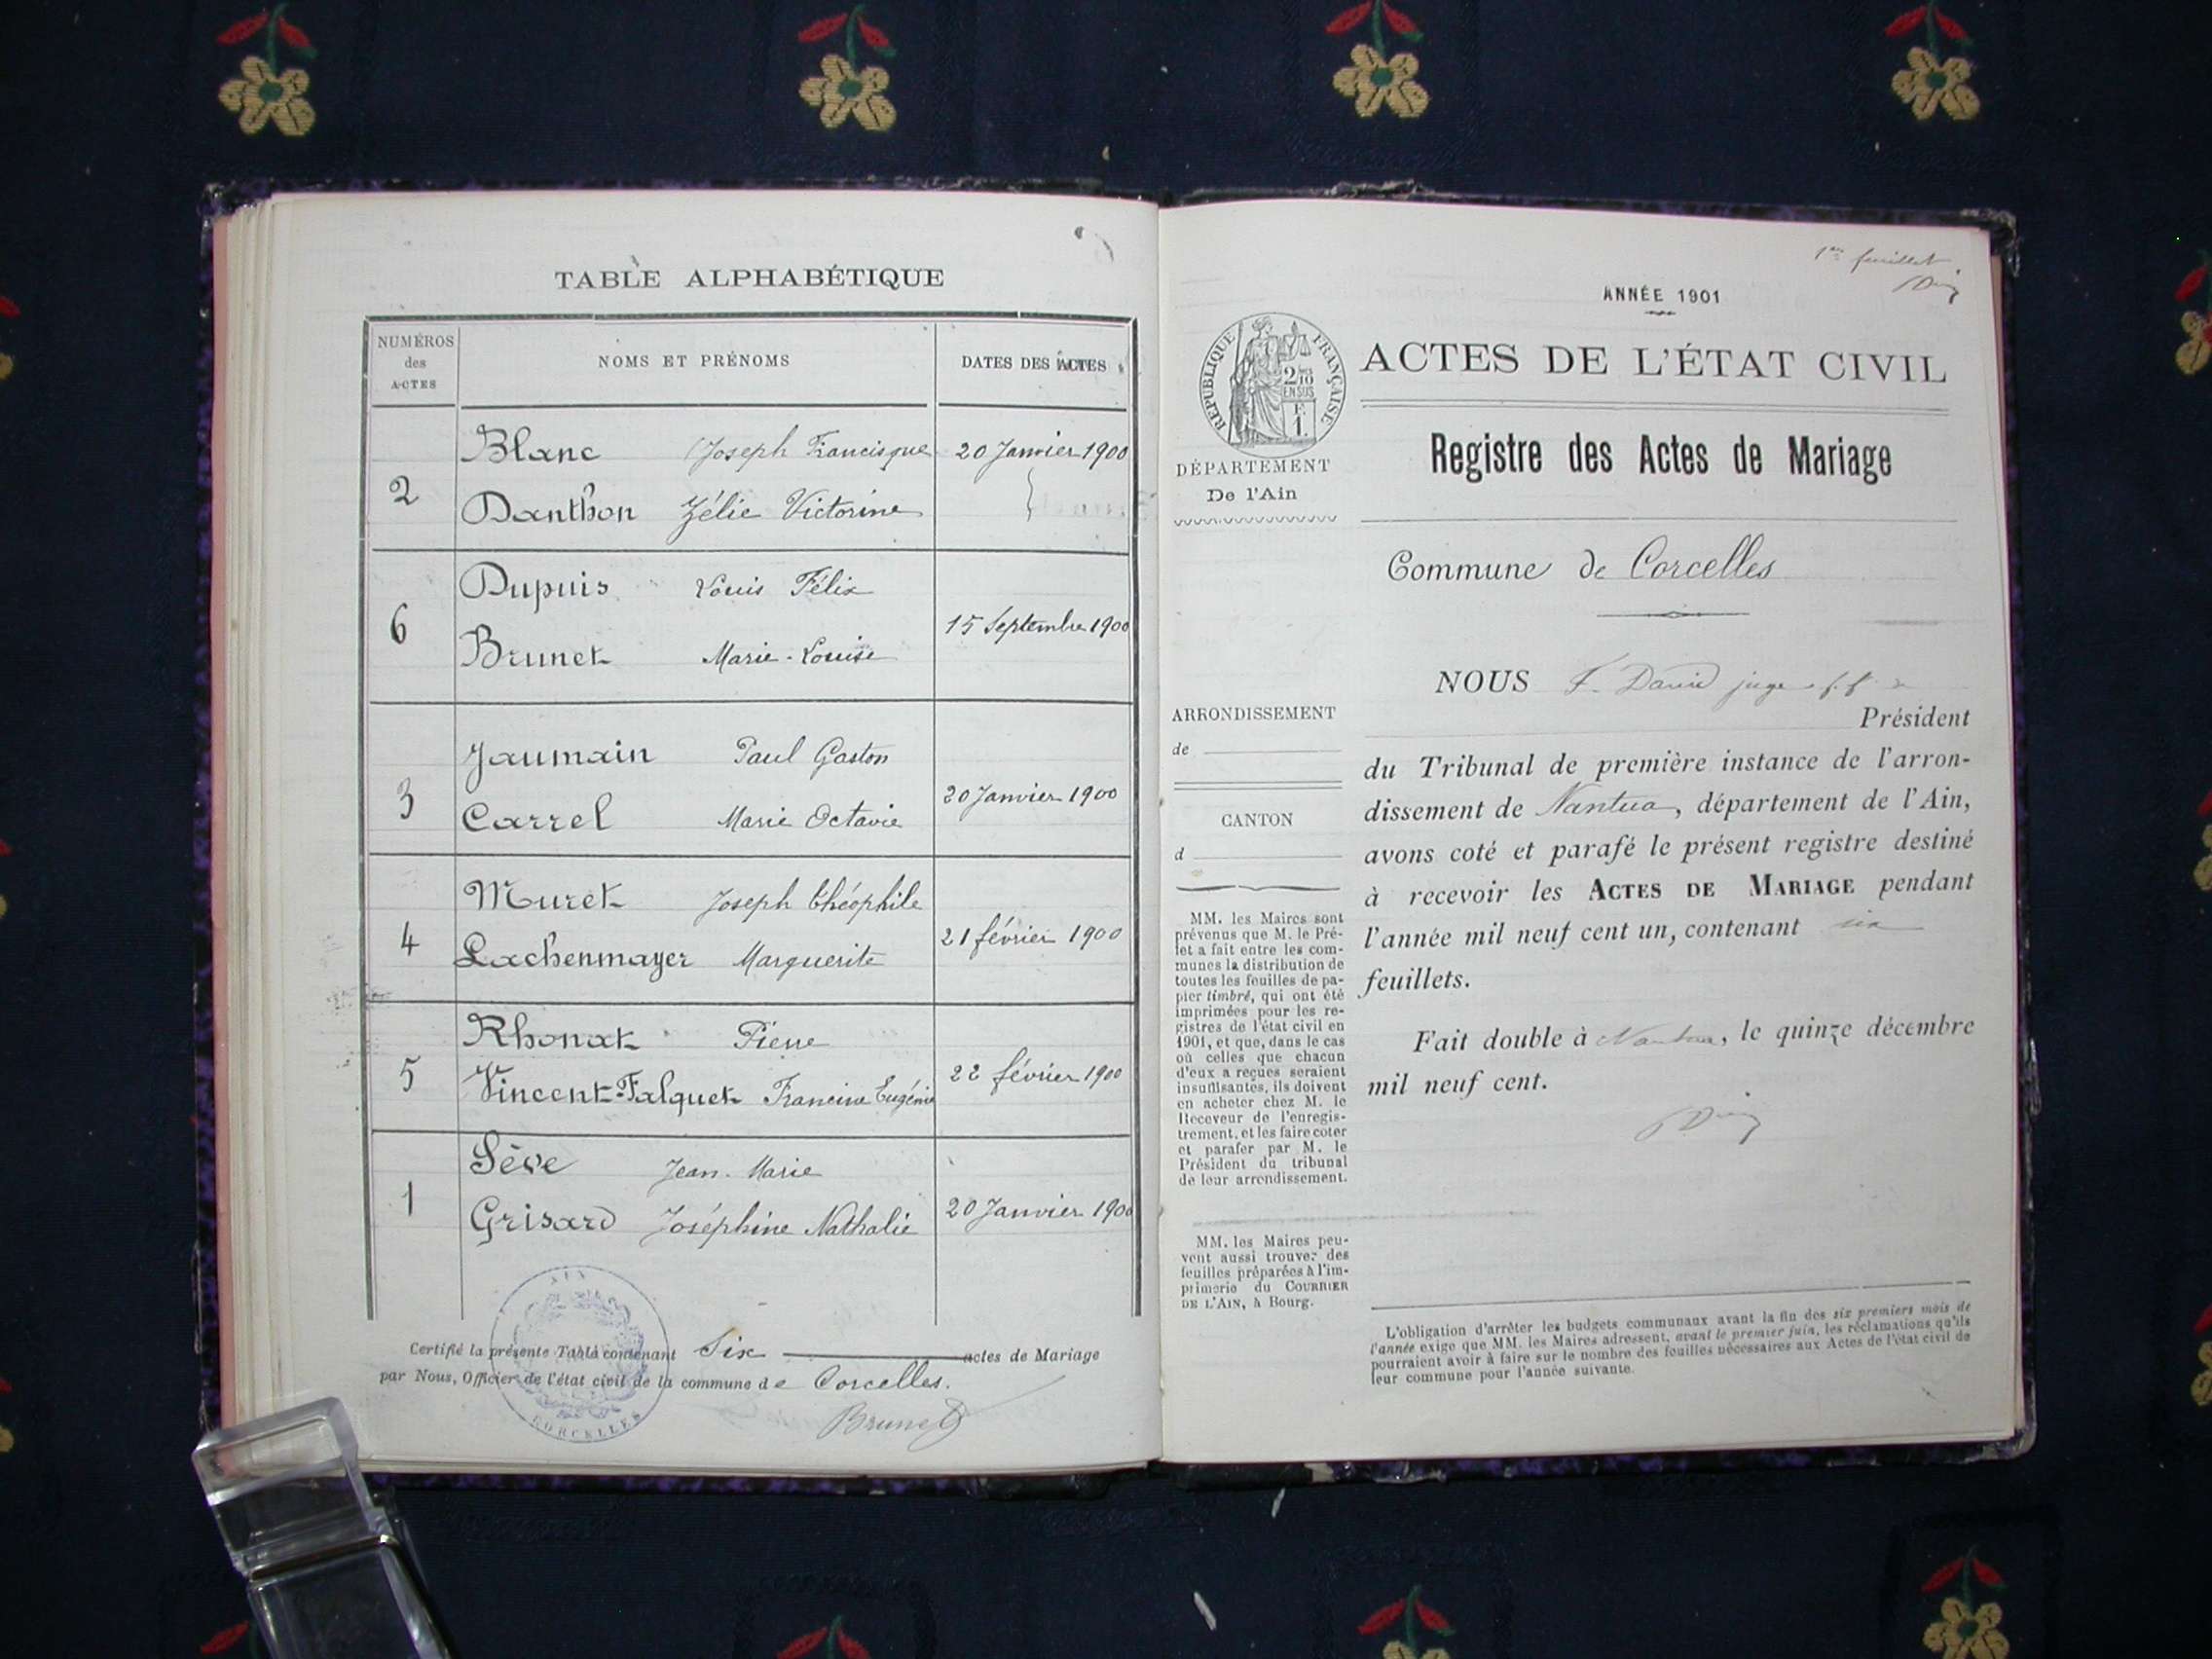 TABLE ALPHABÉTIQUE
NUMÉROS
des
ACTES
NOMS ET PRÉNOMS
DATES DES ACTES
Blanc Joseph Francisque 20 Janvier 1900
2
Danthon Zélie Victorine
Dupuis Louis Félix
6
15 Septembre 1900
Brunet Marie-Louise
Jaumain Paul Gaston
3
20 Janvier 1900
Carrel Marie Octavie
Muret Joseph Théophile
4
21 février 1900
Lachenmayer Marguerite
Rhonat Pierre
5
22 février 1900
Vincent-Falquet Francine Eugénie
Sève Jean-Marie
1
20 Janvier 1900
Grisard Joséphine Nathalie
Certifié la présente Table contenant Six actes de Mariage
par Nous, Officier de l'état civil de la commune de Corcelles.
Brunet
AIN
CORCELLES
1er feuillet
ANNÉE 1901
RÉPUBLIQUE FRANÇAISE
2/10
EN SUS
F.
1.
ACTES DE L'ÉTAT CIVIL
Registre des Actes de Mariage
DÉPARTEMENT
De l'Ain
Commune de Corcelles
ARRONDISSEMENT
de
CANTON
d
MM. les Maires sont
prévenus que M. le Pré-
fet a fait entre les com-
munes la distribution de
toutes les feuilles de pa-
pier timbré, qui ont été
imprimées pour les re-
gistres de l'état civil en
1901, et que, dans le cas
où celles que chacun
d'eux a reçues seraient
insuffisantes, ils doivent
en acheter chez M. le
Receveur de l'enregis-
trement, et les faire coter
et parafer par M. le
Président du tribunal
de leur arrondissement.
MM. les Maires peu-
vent aussi trouver des
feuilles préparées à l'im-
primerie du COURRIER
DE L'AIN, à Bourg.
NOUS F. David juge f.f.
Président
du Tribunal de première instance de l'arron-
dissement de Nantua, département de l'Ain,
avons coté et parafé le présent registre destiné
à recevoir les ACTES DE MARIAGE pendant
l'année mil neuf cent un, contenant six
feuillets.
Fait double à Nantua, le quinze décembre
mil neuf cent.
L'obligation d'arrêter les budgets communaux avant la fin des six premiers mois de
l'année exige que MM. les Maires adressent, avant le premier juin, les réclamations qu'ils
pourraient avoir à faire sur le nombre des feuilles nécessaires aux Actes de l'état civil de
leur commune pour l'année suivante.